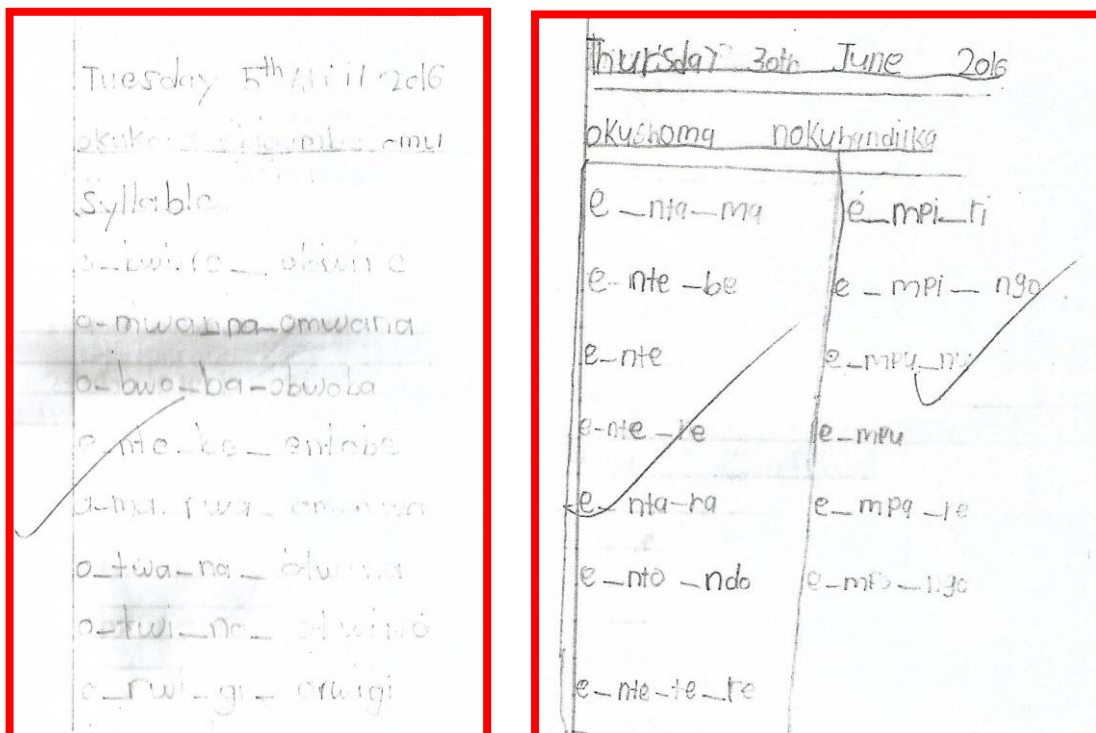 Tuesday 5th April 2016
omu
Syllable
o-mwa-na-omwana
o-bwo-ba-obwoba
e-nte-be_entebe
o_twa_na_otwana
o_twi_no_otwino
o_rwi_gi_orwigi
Thursday 30th June 2016
okushoma nokuhandiika
e_nta_ma
e-nte_be
e_nte
e-nte_re
e_nta-ra
e_nto_ndo
e_nte-te_re
e_mpi_ri
e_mpi_ngo
e_mpu_nu
e_mpu
e_mpa_re
e_mpo_ngo